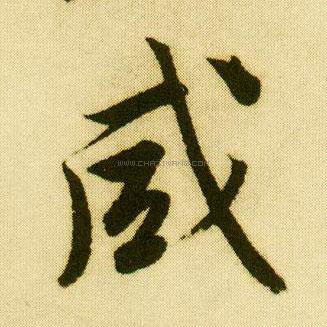 咸
WWW.CHAZIWANG.COM